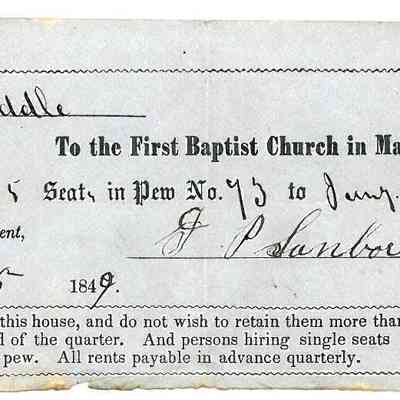 ddle
To the First Baptist Church in Ma
5 Seats in Pew No. 73 to Juny.
ent,
F P Sanbor
5 1849.
this house, and do not wish to retain them more than
d of the quarter. And persons hiring single seats
pew. All rents payable in advance quarterly.